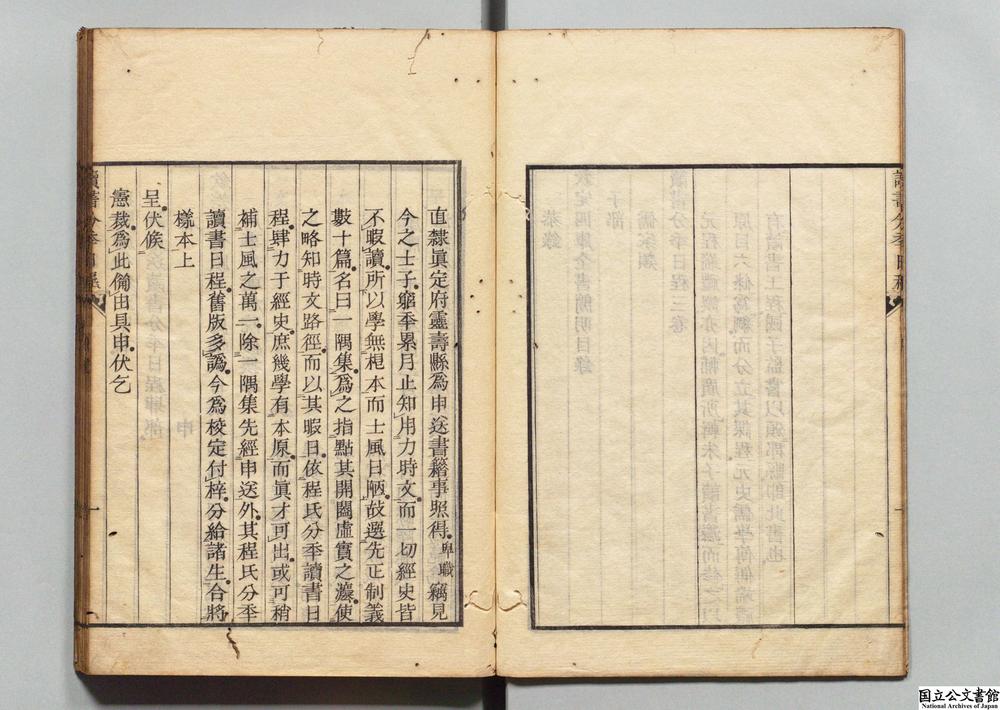 直隸眞定府靈壽縣爲申送書籍事照得卑職竊見
今之士子窮季累月止知用力時文而一切經史皆
不暇讀所以學無根本而士風日陋玆選先正制義
數十篇名曰一隅集爲之指點其開闔虛實之灋使
之略知時文路徑而以其暇日依程氏分季讀書日
程肆力于經史庶幾學有本原而眞才可出或可稍
補士風之萬一除一隅集先經申送外其程氏分季
讀書日程舊版多譌今爲校定付梓分給諸生合將
樣本上
呈伏候
憲裁爲此僃由具申伏乞
讀書分季日程
一
国立公文書館
National Archives of Japan